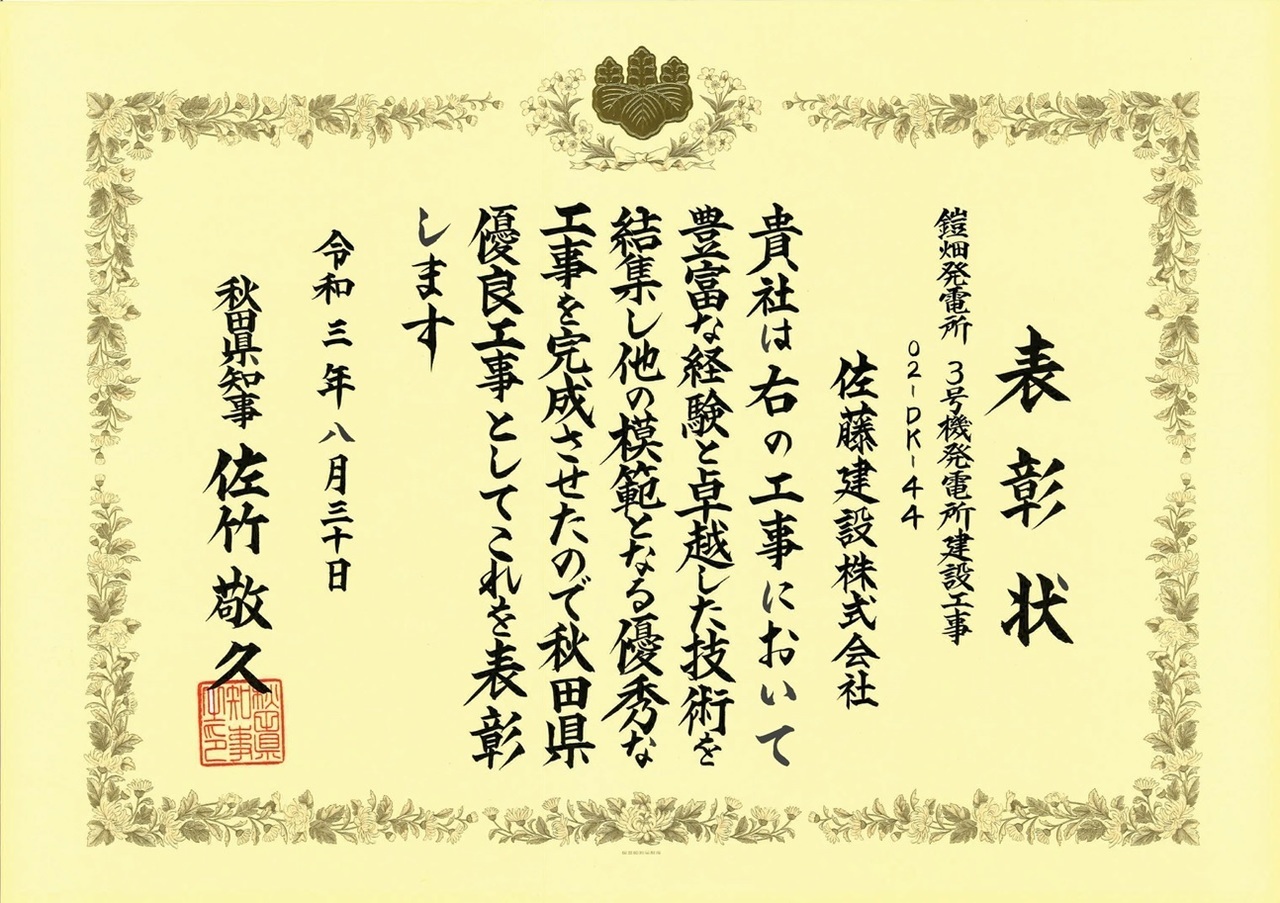 表彰状
鎧畑発電所 3号機発電所建設工事
02-DK-44
佐藤建設株式会社
貴社は右の工事において
豊富な経験と卓越した技術を
結集し他の模範となる優秀な
工事を完成させたので秋田県
優良工事としてこれを表彰
します
令和三年八月三十日
秋田県知事 佐竹敬久
秋田県
知事
之印